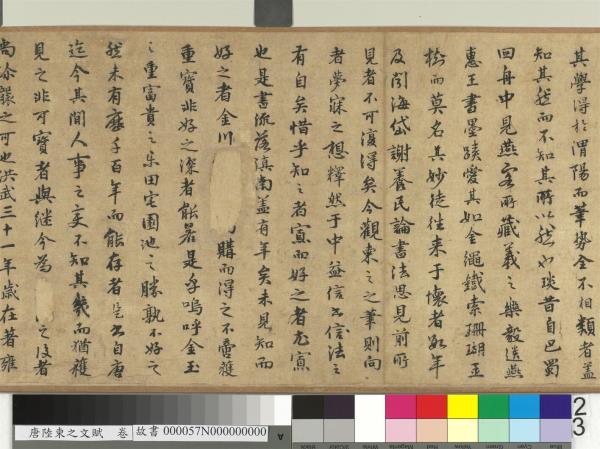 其學得於渭陽而筆勢全不相類者蓋
知其然而不知其所以然也琰昔自巴蜀
回舟中見燕客所藏羲之樂毅遺燕
惠王書墨蹟愛其如金繩鐵索珊瑚玉
樹而莫名其妙徒往来于懷者數年
及到海岱謝養民論書法思見前所
見者不可復得矣今觀柬之之筆則向
者夢寐之想釋然于中益信書法之
有自矣惜乎知之者寡而好之者尤寡
也是書流落滇南蓋有年矣未見知而
好之者金川 購而得之不啻獲
重寶非好之深者能若是乎嗚呼金玉
之重富貴之樂田宅園池之勝孰不好之
然未有歷千百年而能存者是書自唐
迄今其間人事之變不知其幾而猶獲
見之非可寶者與繼今為 之後者
尚珍襲之可也洪武三十一年歲在著雍
唐陸柬之文賦 卷
故書 000057N000000000
A
23
Blue
Cyan
Green
Yellow
Red
Magenta
White
Black